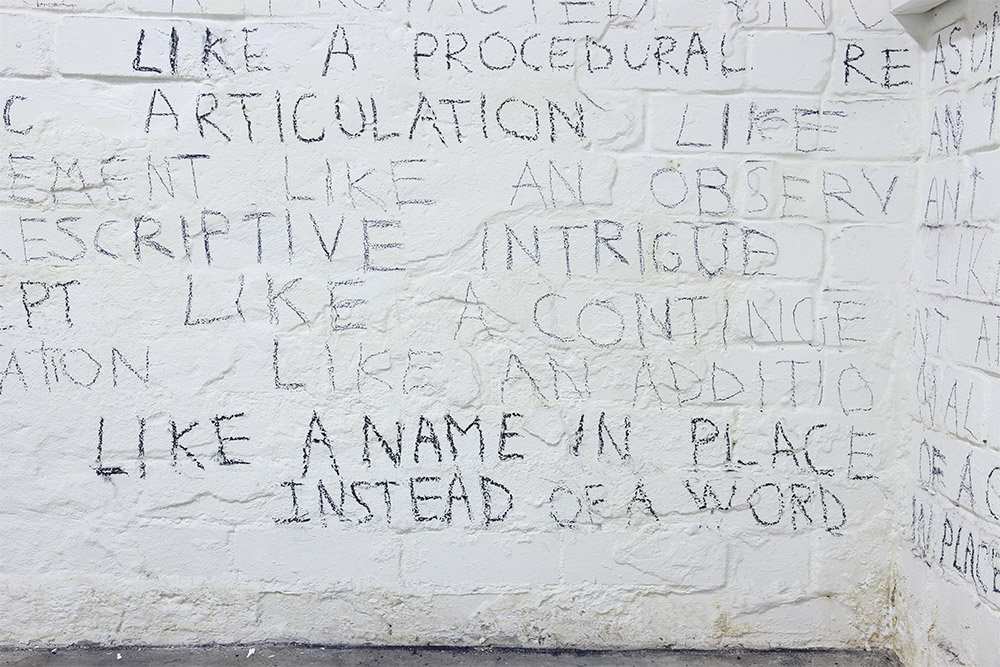 LIKE A PROCEDURAL RE
C ARTICULATION LIKE
EMENT LIKE AN OBSERV
ESCRIPTIVE INTRIGUE
EPT LIKE A CONTINGE
ATION LIKE AN ADDITIO
LIKE A NAME IN PLACE
INSTEAD OF A WORD
AN
LIKE
OF A C
IN PLACE